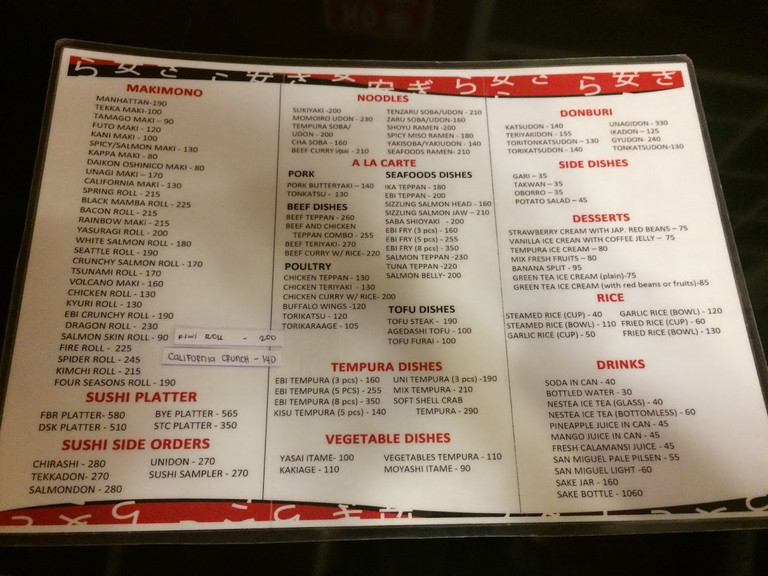 MAKIMONO
MANHATTAN-190
TEKKA MAKI-100
TAMAGO MAKI – 90
FUTO MAKI - 120
KANI MAKI - 100
SPICY/SALMON MAKI - 130
KAPPA MAKI - 80
DAIKON OSHINICO MAKI - 80
UNAGI MAKI – 170
CALIFORNIA MAKI - 130
SPRING ROLL - 215
BLACK MAMBA ROLL - 225
BACON ROLL - 215
RAINBOW MAKi - 215
YASURAGI ROLL - 200
WHITE SALMON ROLL - 180
SEATTLE ROLL - 190
CRUNCHY SALMON ROLL - 170
TSUNAMI ROLL - 170
VOLCANO MAKI - 160
CHICKEN ROLL - 130
KYURI ROLL - 130
EBI CRUNCHY ROLL - 190
DRAGON ROLL - 230
SALMON SKIN ROLL - 90
FIRE ROLL - 225
SPIDER ROLL - 245
KIMCHI ROLL - 215
FOUR SEASONS ROLL - 190
KIWI ROLL - 200
CALIFORNIA CRUNCH - 140
SUSHI PLATTER
FBR PLATTER- 580
DSK PLATTER - 510
BYE PLATTER - 565
STC PLATTER - 350
SUSHI SIDE ORDERS
CHIRASHI - 280
TEKKADON- 270
SALMONDON - 280
UNIDON - 270
SUSHI SAMPLER - 270
NOODLES
SUKIYAKI -200
MOMOIRO UDON - 230
TEMPURA SOBA/
UDON - 200
CHA SOBA - 160
BEEF CURRY - 210
TENZARU SOBA/UDON - 210
ZARU SOBA/UDON-160
SHOYU RAMEN - 200
SPICY MISO RAMEN - 180
YAKISOBA/YAKIUDON - 140
SEAFOODS RAMEN- 210
A LA CARTE
PORK
PORK BUTTERYAKI – 140
TONKATSU – 130
BEEF DISHES
BEEF TEPPAN - 260
BEEF AND CHICKEN
TEPPAN COMBO - 255
BEEF TERIYAKI- 270
BEEF CURRY W/ RICE- 220
POULTRY
CHICKEN TEPPAN - 130
CHICKEN TERIYAKI - 130
CHICKEN CURRY W/ RICE- 200
BUFFALO WINGS -120
TORIKATSU - 120
TORIKARAAGE - 105
SEAFOODS DISHES
IKA TEPPAN - 180
EBI TEPPAN - 200
SIZZLING SALMON HEAD - 160
SIZZLING SALMON JAW – 210
SABA SHIOYAKI - 200
EBI FRY (3 pcs) - 160
EBI FRY (5 pcs) - 255
EBI FRY (8 pcs) - 350
SALMON TEPPAN - 230
TUNA TEPPAN -220
SALMON BELLY- 200
TOFU DISHES
TOFU STEAK - 190
AGEDASHI TOFU - 100
TOFU FURAI - 100
TEMPURA DISHES
EBI TEMPURA (3 pcs) - 160
EBI TEMPURA (5 PCS) - 255
EBI TEMPURA (8 pcs) - 350
KISU TEMPURA (5 pcs) - 140
UNI TEMPURA (3 pcs) -190
MIX TEMPURA - 210
SOFT SHELL CRAB
TEMPURA - 290
VEGETABLE DISHES
YASAI ITAME- 100
KAKIAGE - 110
VEGETABLES TEMPURA - 110
MOYASHI ITAME - 90
DONBURI
KATSUDON - 140
TERIYAKIDON - 155
TORITONKATSUDON – 130
TORIKATSUDON - 140
UNAGIDON - 330
IKADON – 125
GYUDON- 240
TONKATSUDON-130
SIDE DISHES
GARI – 35
TAKWAN – 35
OBORRO – 35
POTATO SALAD – 45
DESSERTS
STRAWBERRY CREAM WITH JAP. RED BEANS – 75
VANILLA ICE CREAN WITH COFFEE JELLY – 75
TEMPURA ICE CREAM – 80
MIX FRESH FRUITS – 80
BANANA SPLIT - 95
GREEN TEA ICE CREAM (plain)-75
GREEN TEA ICE CREAM (with red beans or fruits)-85
RICE
STEAMED RICE (CUP) - 40
STEAMED RICE (BOWL) - 110
GARLIC RICE (CUP) - 50
GARLIC RICE (BOWL) - 120
FRIED RICE (CUP) – 60
FRIED RICE (BOWL) - 130
DRINKS
SODA IN CAN - 40
BOTTLED WATER - 30
NESTEA ICE TEA (GLASS) - 40
NESTEA ICE TEA (BOTTOMLESS) - 60
PINEAPPLE JUICE IN CAN - 45
MANGO JUICE IN CAN - 45
FRESH CALAMANSI JUICE - 45
SAN MIGUEL PALE PILSEN - 55
SAN MIGUEL LIGHT -60
SAKE JAR - 160
SAKE BOTTLE - 1060